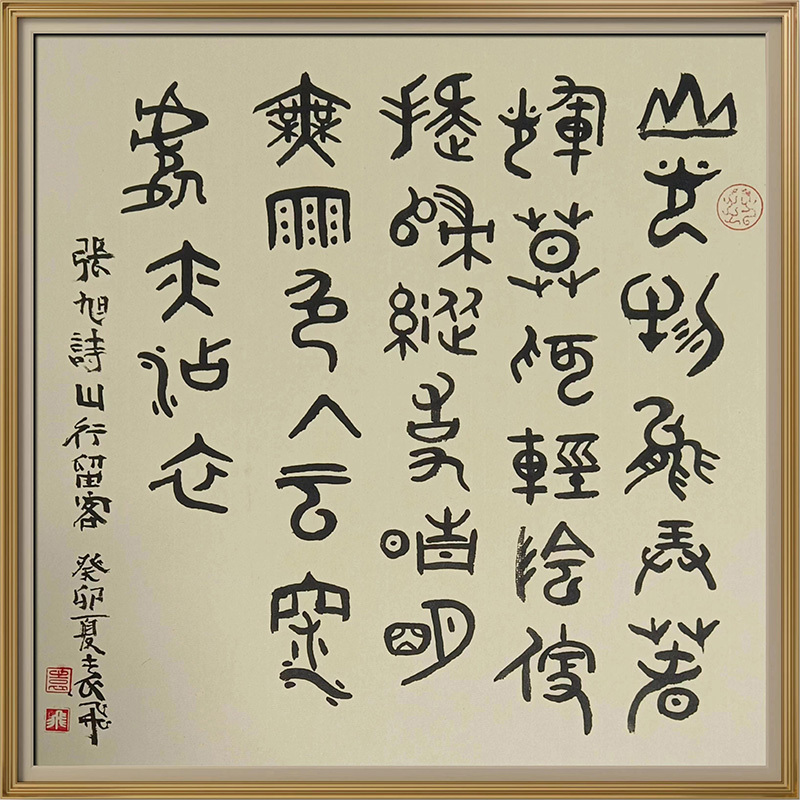 山光物態弄春
輝莫為輕陰便
擬歸縱使晴明
無雨色入云深
處亦沾衣
張旭詩山行留客 癸卯夏袁飛